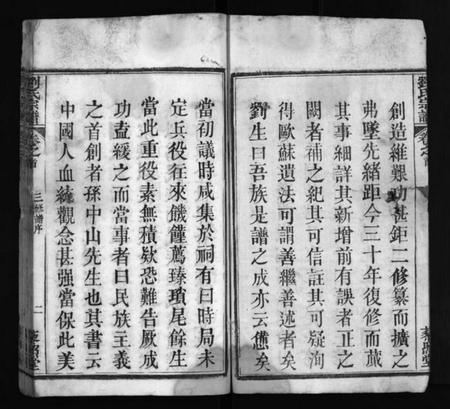 劉氏宗譜 卷之首
創造維艱功甚鉅二修纂而擴之
弗墜先緒距今三十年復修而蕆
其事細詳其新增前有誤者正之
闕者補之紀其可信註其可疑洵
得歐蘇遺法可謂善繼善述者矣
劉生曰吾族是譜之成亦云憊矣
當初議時咸集於祠有曰時局未
定兵役往來饑饉薦臻瑣尾餘生
當此重役素無積欵恐難告厥成
功盍緩之而當事者曰民族主義
之首創者孫中山先生也其書云
中國人血統觀念甚强當保此美
劉氏宗譜 卷之首 三修譜序 二